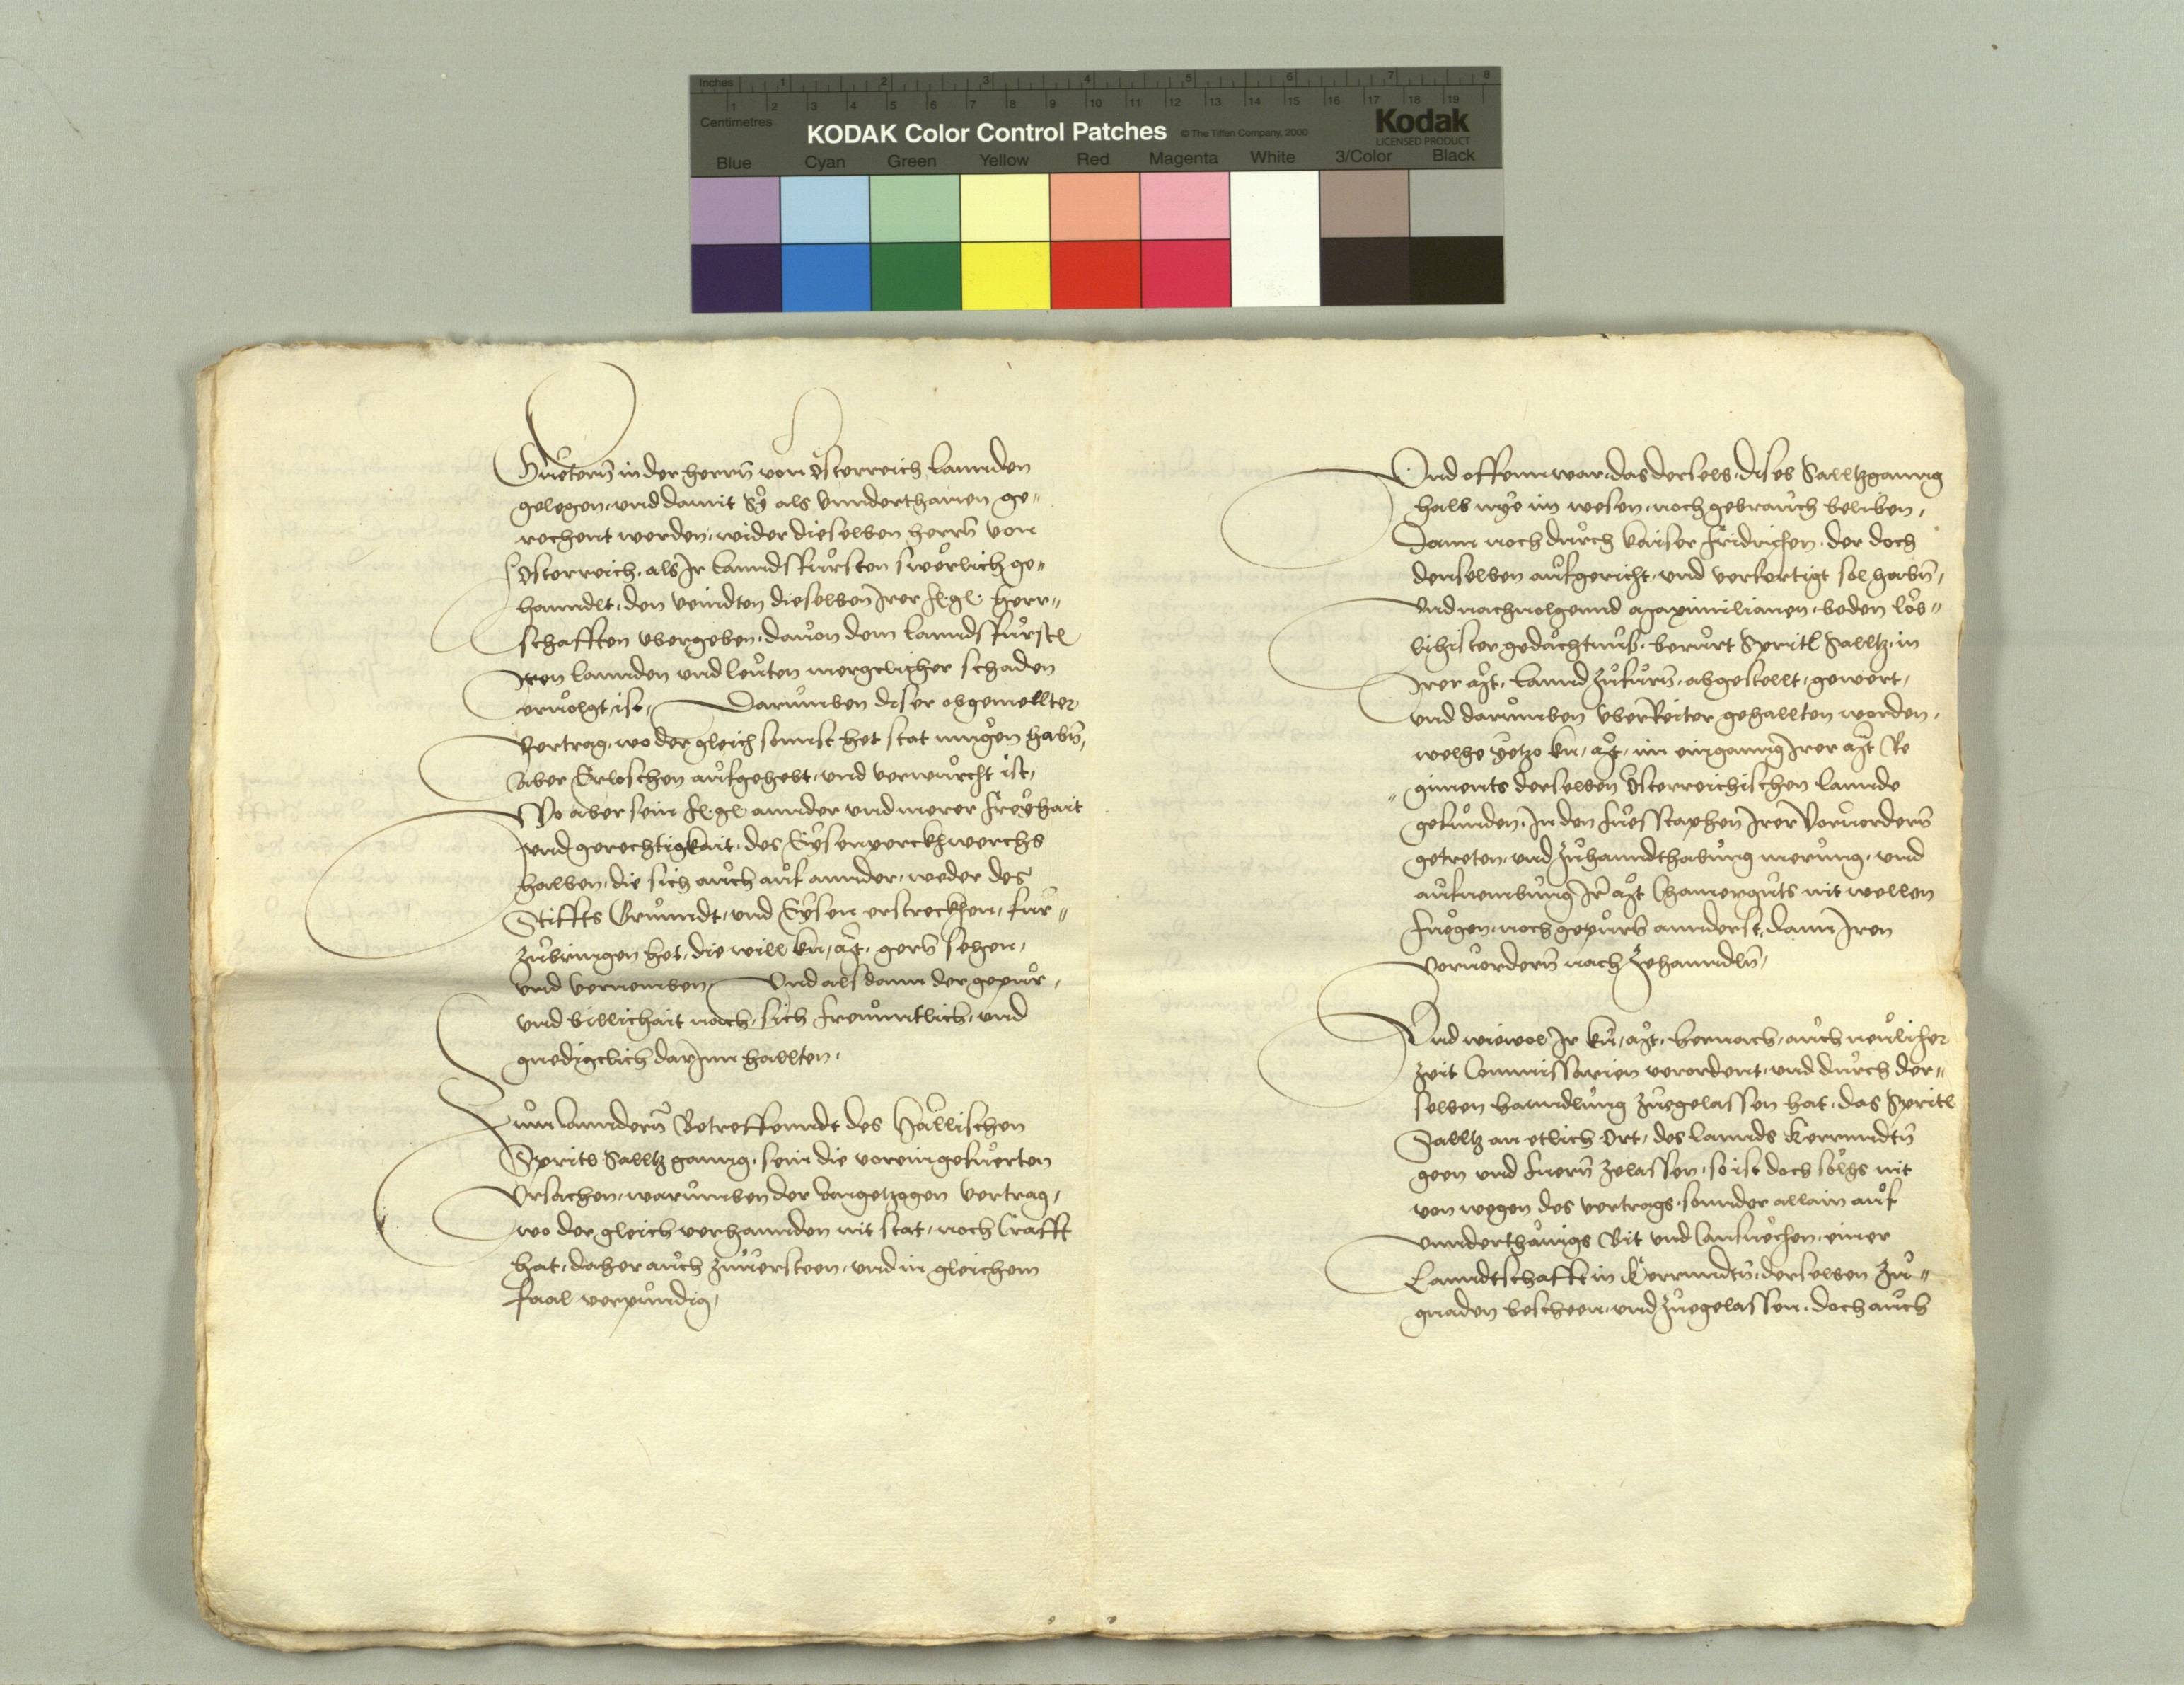 Inches 1 2 3 4 5 6 7 8
1 2 3 4 5 6 7 8 9 10 11 12 13 14 15 16 17 18 19
Centimetres
KODAK Color Control Patches © The Tiffen Company, 2000 Kodak
LICENSED PRODUCT
Blue Cyan Green Yellow Red Magenta White 3/Color Black
Guetern in der herrn von Osterreich Lannden
gelegen, und damit Sÿ als Vnnderthanen ge„
rechent werden, wider dieselben herrn von
Osterreich, als Ir Lanndsfürsten swerlich ge„
hanndlt, den veindten dieselben Irer herr„
schafften vbergeben, dauon dem Lanndsfürstl
Iren Lannden und Leuten mergclicher schaden
eruolgt ist, Darumben diser obgemellter
Vertrag, wo der gleich sonnst het stat mugen habn,
Aber Erloschen aufgehebt, und verwurcht ist,
Wo aber sein annder und merer freÿhait
und gerechtigkait, des Eÿsenperckhwerchs
halben, die sich auch auf annder, weder des
Stiffts Grunndt, und Eÿsen erstreckhen, für„
zubringen het, die will ku, Mt, gern sehen,
und vernemben, Und alsdann der gepür,
und billichait nach, sich freuntlich, und
gnedigclich darInn hallten,
Zum Anndern Betreffenndt des Hällischen
Spritl Salltz ganng, sein die voreingefuerten
Ursachen, warumben der Angetzogen Vertrag,
wo der gleich verhannden nit stat, noch Crafft
hat, daher auch zuuersteen, und in gleichem
faal verpundig,
Und offennwar, das derselb, dises Salltzganng
halb nÿe im wesen, noch gebrauch beliben,
Dann noch durch Kaiser Fridrichen, der doch
denselben aufgericht, und verfertigt sol habn,
Und nachuolgennd Maximilianen, beden lob„
lichister gedachtnuß, berurt Spritl Salltz, in
Irer Mt, Lannd zufurn, abgestellt, gewert,
und darumben Uberreiter gehallten worden,
welhe ÿetzo ku, Mt, im eingang Irer Mt Re
„ giments derselben Osterreichischen Lannde
gefunden, In den fuesstaphen Irer Voruordern
getreten, und zu hanndthabung merung, und
aufnembung Ir Mt Chamerguts nit wellen
fuegen, noch gepurn annderst, dann Iren
Voruordern nach zehanndln,
Und wiewol Ir ku, Mt, hernach, auch neulicher
zeit Commissarien verordent, und durch der„
selben hanndlung zuegelassen hat, das Spritl
Salltz an etlich Ort, des Lannds Kernndtn
geen und fuern zelassen, so ist doch solhs nit
von wegen des Vertrags, sonnder allain auf
unnderthanigs Bit und Ansuechen, einer
Lanndtschafft in Kernndtn, derselben Zu„
gnaden bescheen, und zuegelassen, doch auch